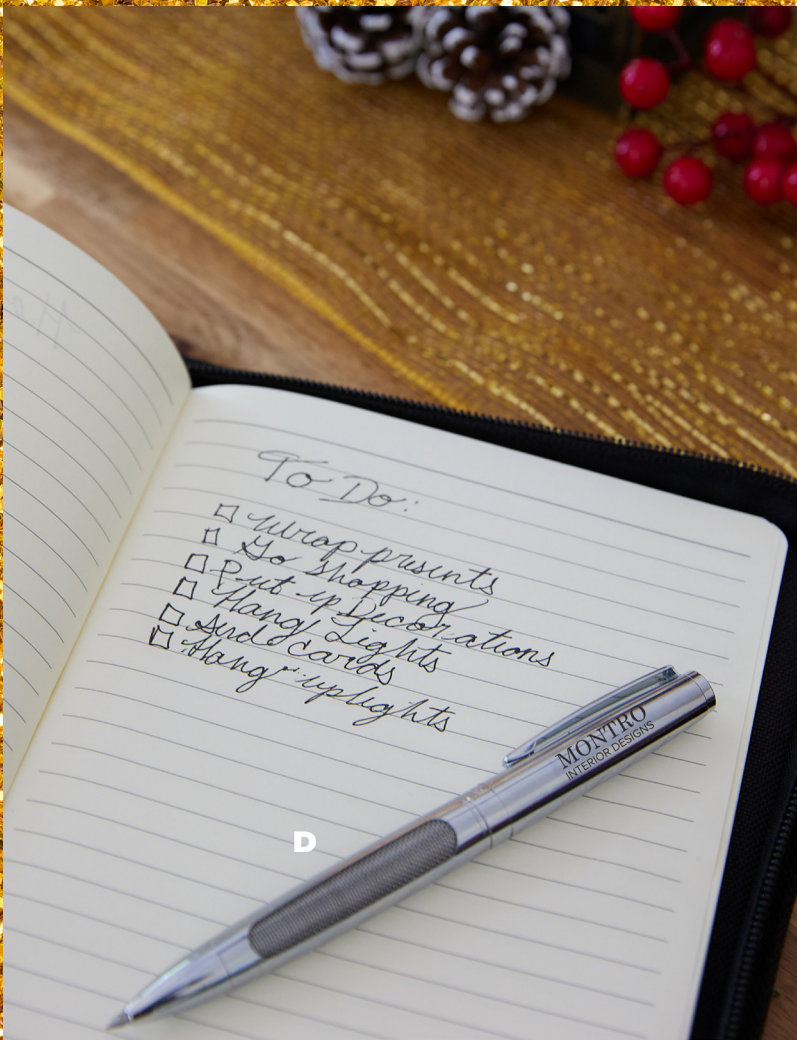 To Do:
□ Wrap presents
□ Go Shopping
□ Put up Decorations
□ Hang Lights
□ Send cards
□ Hang uplights
MONTRO
INTERIOR DESIGNS
D